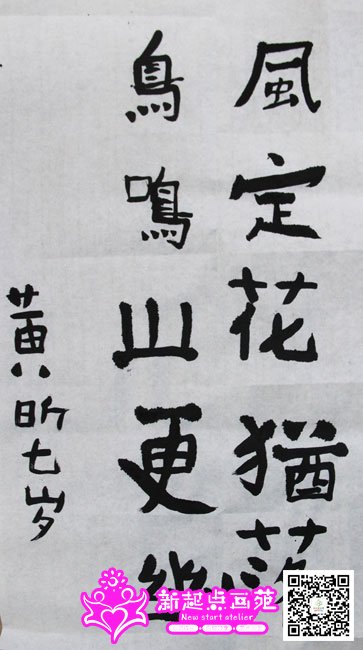 風定花猶落
鳥鳴山更幽
黄昕七岁
新起点画苑
New start atelier